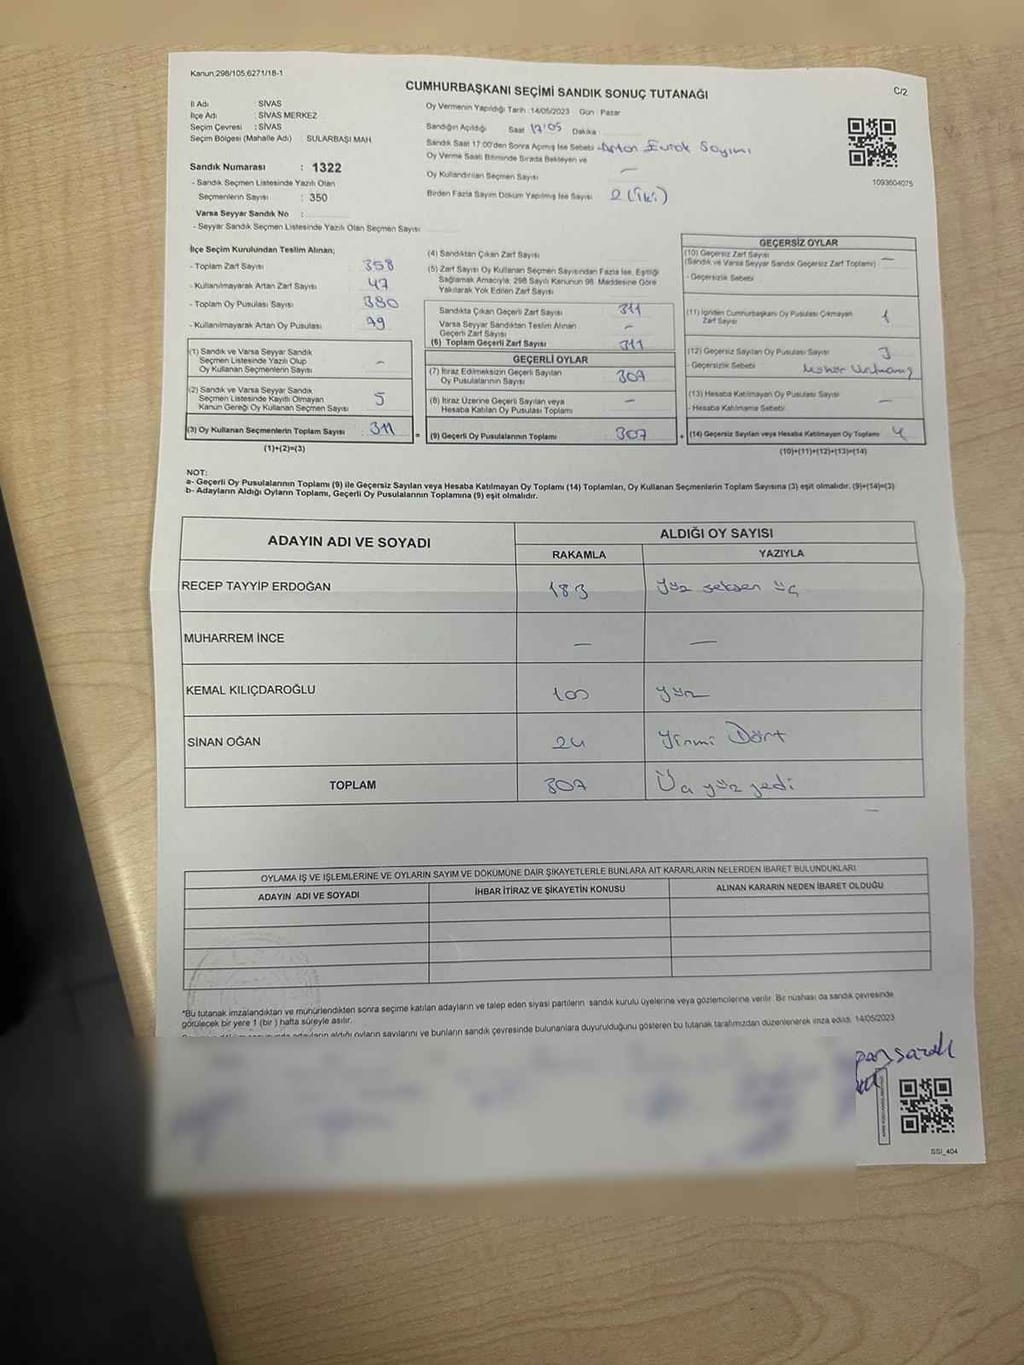 Kanun:298/105,6271/18-1
CUMHURBAŞKANI SEÇİMİ SANDIK SONUÇ TUTANAĞI
C/2
İl Adı : SİVAS
İlçe Adı : SİVAS MERKEZ
Seçim Çevresi : SİVAS
Seçim Bölgesi (Mahalle Adı) : SULARBAŞI MAH
Sandık Numarası : 1322
- Sandık Seçmen Listesinde Yazılı Olan
Seçmenlerin Sayısı : 350
Varsa Seyyar Sandık No :
- Seyyar Sandık Seçmen Listesinde Yazılı Olan Seçmen Sayısı
Oy Vermenin Yapıldığı Tarih :14/05/2023 Gün : Pazar
Sandığın Açıldığı Saat 17:05 Dakika
Sandık Saat 17:00'den Sonra Açmış İse Sebebi - Artan Evrak Sayımı
Oy Verme Saati Bitiminde Sırada Bekleyen ve
Oy Kullandırılan Seçmen Sayısı —
Birden Fazla Sayım Döküm Yapılmış İse Sayısı 2 (İki)
1093604075
İlçe Seçim Kurulundan Teslim Alınan;
- Toplam Zarf Sayısı 358
- Kullanılmayarak Artan Zarf Sayısı 47
- Toplam Oy Pusulası Sayısı 380
- Kullanılmayarak Artan Oy Pusulası
(1) Sandık ve Varsa Seyyar Sandık
Seçmen Listesinde Yazılı Olup
Oy Kullanan Seçmenlerin Sayısı -
(2) Sandık ve Varsa Seyyar Sandık
Seçmen Listesinde Kayıtlı Olmayan
Kanun Gereği Oy Kullanan Seçmen Sayısı 5
(3) Oy Kullanan Seçmenlerin Toplam Sayısı 311
(1)+(2)=(3)
(4) Sandıktan Çıkan Zarf Sayısı
(5) Zarf Sayısı Oy Kullanan Seçmen Sayısından Fazla İse, Eşitliği
Sağlamak Amacıyla, 298 Sayılı Kanunun 98. Maddesine Göre
Yakılarak Yok Edilen Zarf Sayısı
Sandıkta Çıkan Geçerli Zarf Sayısı 311
Varsa Seyyar Sandıktan Teslim Alınan
Geçerli Zarf Sayısı -
(6) Toplam Geçerli Zarf Sayısı 311
GEÇERLİ OYLAR
(7) İtiraz Edilmeksizin Geçerli Sayılan
Oy Pusulalarının Sayısı 307
(8) İtiraz Üzerine Geçerli Sayılan veya
Hesaba Katılan Oy Pusulası Toplamı —
= (9) Geçerli Oy Pusulalarının Toplamı 307 +
GEÇERSİZ OYLAR
(10) Geçersiz Zarf Sayısı
(Sandık ve Varsa Seyyar Sandık Geçersiz Zarf Toplamı) —
- Geçersizlik Sebebi
(11) İçinden Cumhurbaşkanı Oy Pusulası Çıkmayan
Zarf Sayısı 1
(12) Geçersiz Sayılan Oy Pusulası Sayısı 3
- Geçersizlik Sebebi
(13) Hesaba Katılmayan Oy Pusulası Sayısı —
- Hesaba Katılmama Sebebi
(14) Geçersiz Sayılan veya Hesaba Katılmayan Oy Toplamı 4
(10)+(11)+(12)+(13)=(14)
NOT:
a- Geçerli Oy Pusulalarının Toplamı (9) ile Geçersiz Sayılan veya Hesaba Katılmayan Oy Toplamı (14) Toplamları, Oy Kullanan Seçmenlerin Toplam Sayısına (3) eşit olmalıdır. (9)+(14)=(3)
b- Adayların Aldığı Oyların Toplamı, Geçerli Oy Pusulalarının Toplamına (9) eşit olmalıdır.
ADAYIN ADI VE SOYADI ALDIĞI OY SAYISI
RAKAMLA YAZIYLA
RECEP TAYYİP ERDOĞAN 183 Yüz seksen üç
MUHARREM İNCE — —
KEMAL KILIÇDAROĞLU 100 yüz
SİNAN OĞAN 24 Yirmi Dört
TOPLAM 307 Üç yüz yedi
OYLAMA İŞ VE İŞLEMLERİNE VE OYLARIN SAYIM VE DÖKÜMÜNE DAİR ŞİKAYETLERLE BUNLARA AİT KARARLARIN NELERDEN İBARET BULUNDUKLARI
ADAYIN ADI VE SOYADI İHBAR İTİRAZ VE ŞİKAYETİN KONUSU ALINAN KARARIN NEDEN İBARET OLDUĞU
*Bu tutanak imzalandıktan ve mühürlendikten sonra seçime katılan adayların ve talep eden siyasi partilerin sandık kurulu üyelerine veya gözlemcilerine verilir. Bir nüshası da sandık çevresinde
görülecek bir yere 1 (bir ) hafta süreyle asılır.
adayların aldığı oyların sayılarını ve bunların sandık çevresinde bulunanlara duyurulduğunu gösteren bu tutanak tarafımızdan düzenlenerek imza edildi. 14/05/2023
SSI_404